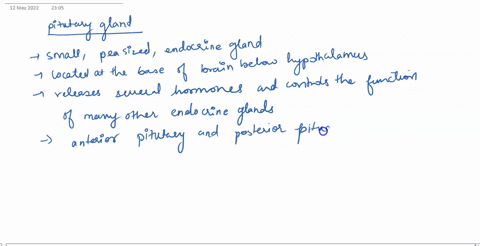 12 May 2022 23:05
pitutary gland
→ small, peasized, endocrine gland
→ located at the base of brain below hypothalamus
→ releases several hormones and controls the function
of many other endocrine glands
→ anterior pitutary and posterior pitu